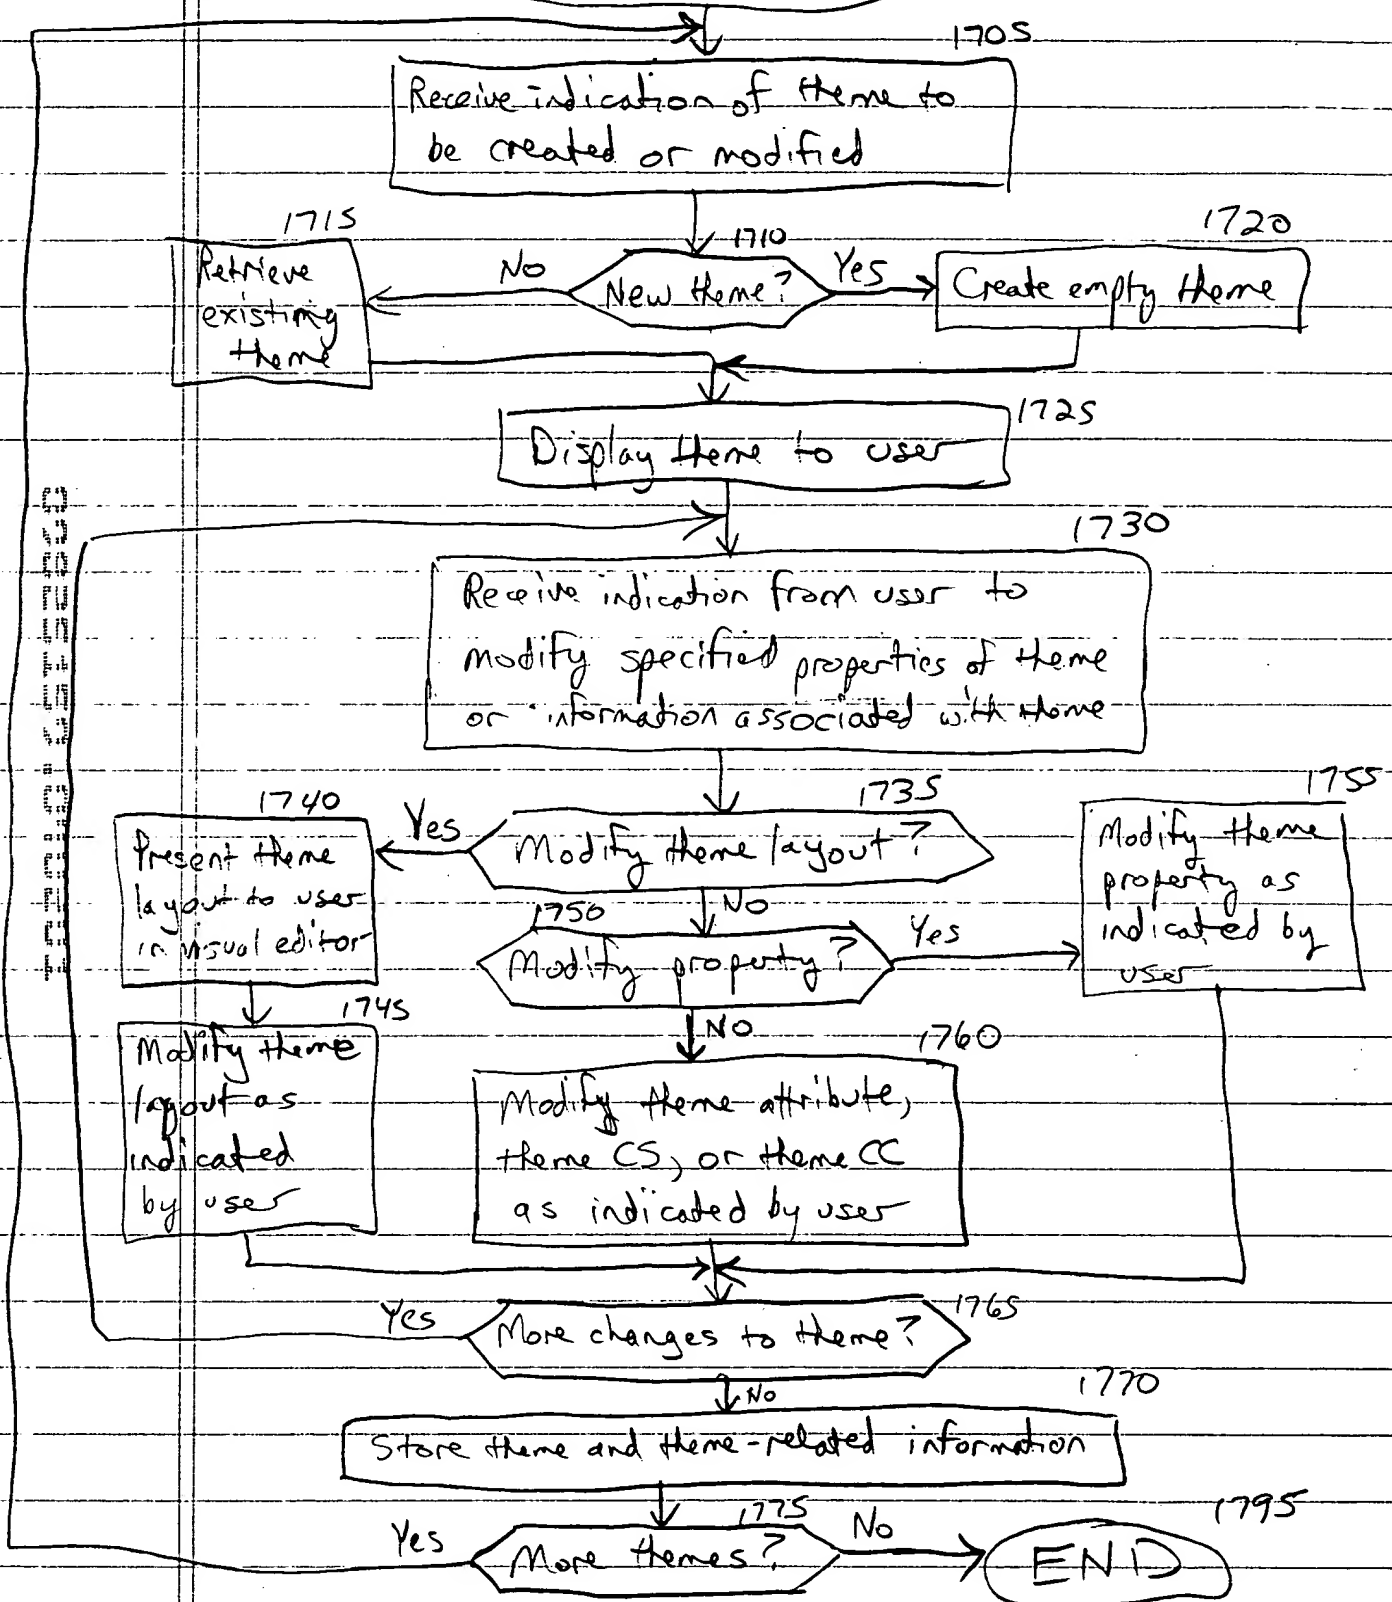 1705
Receive indication of theme to
be created or modified
1715
1710
1720
Retrieve
existing
theme
No
New theme?
Yes
Create empty theme
1725
Display theme to user
1730
Receive indication from user to
modify specified properties of theme
or information associated with theme
1735
1740
Yes
Modify theme layout?
No
Present theme
layout to user
in visual editor
1755
Modify theme
property as
indicated by
user
1750
Modify property?
Yes
No
1745
Modify theme
layout as
indicated
by user
1760
Modify theme attribute,
theme CS, or theme CC
as indicated by user
1765
Yes
More changes to theme?
No
1770
Store theme and theme-related information
1775
Yes
More themes?
No
1795
END